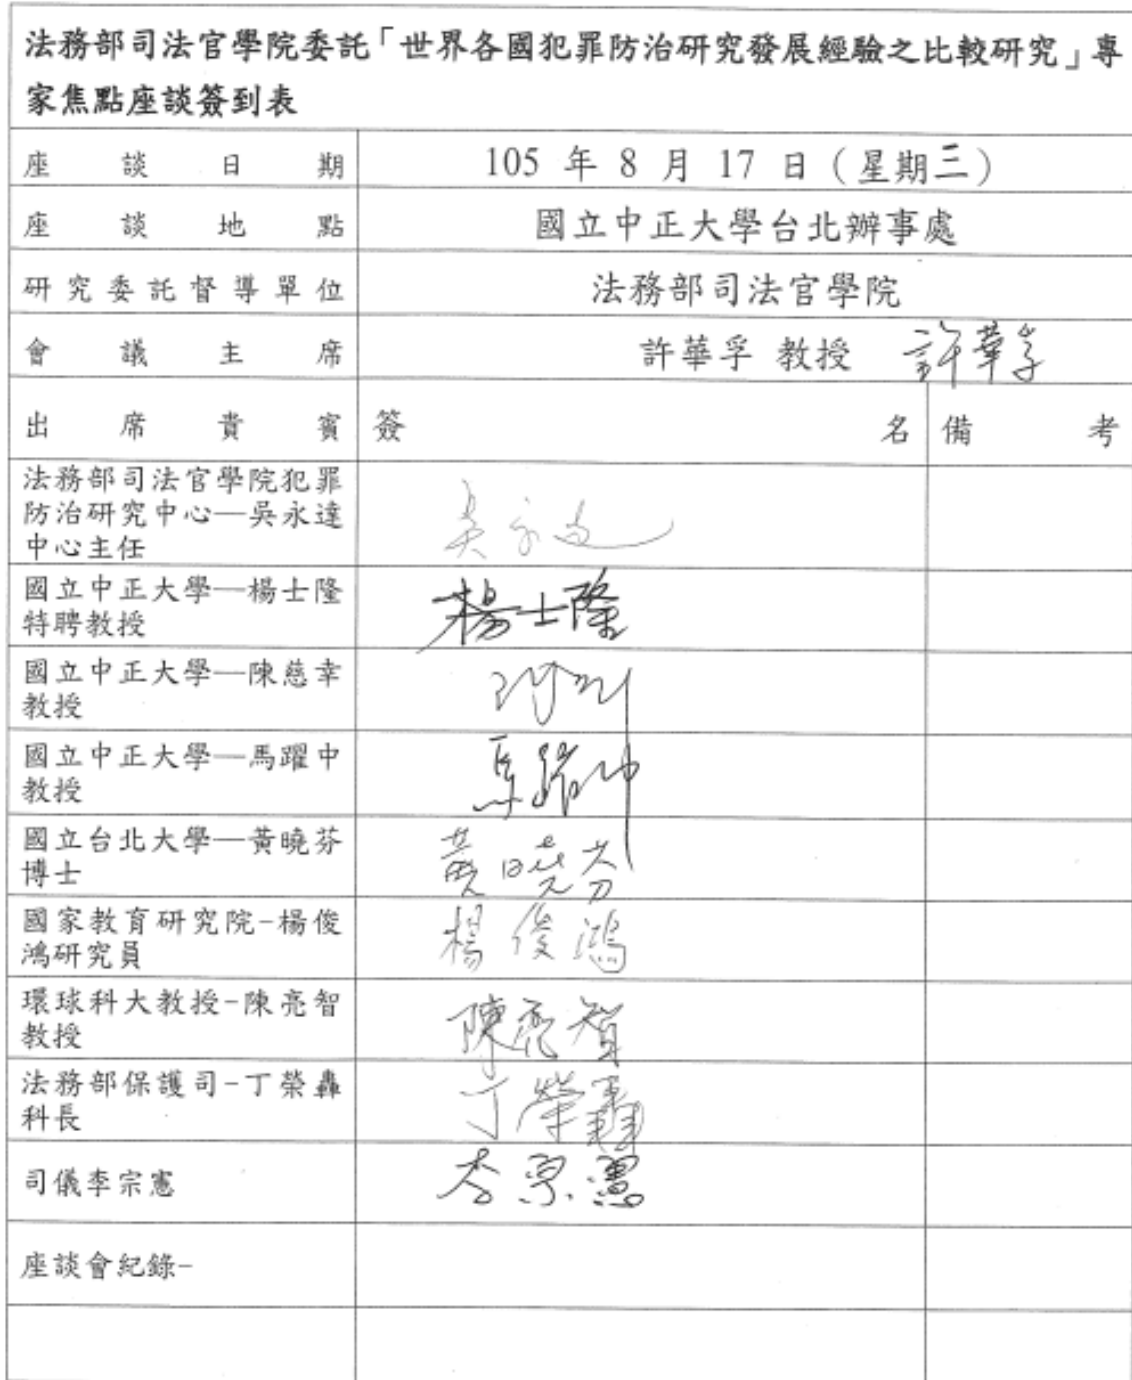 法務部司法官學院委託「世界各國犯罪防治研究發展經驗之比較研究」專
家焦點座談簽到表
座談日期 105 年 8 月 17 日（星期三）
座談地點 國立中正大學台北辦事處
研究委託督導單位 法務部司法官學院
會議主席 許華孚 教授 許華孚
出席貴賓 簽名 備考
法務部司法官學院犯罪
防治研究中心—吳永達 吳永達
中心主任
國立中正大學—楊士隆 楊士隆
特聘教授
國立中正大學—陳慈幸
教授
國立中正大學—馬躍中 馬躍中
教授
國立台北大學—黃曉芬 黃曉芬
博士
國家教育研究院-楊俊 楊俊鴻
鴻研究員
環球科大教授-陳亮智 陳亮智
教授
法務部保護司-丁榮轟 丁榮轟
科長
司儀李宗憲 李宗憲
座談會紀錄-